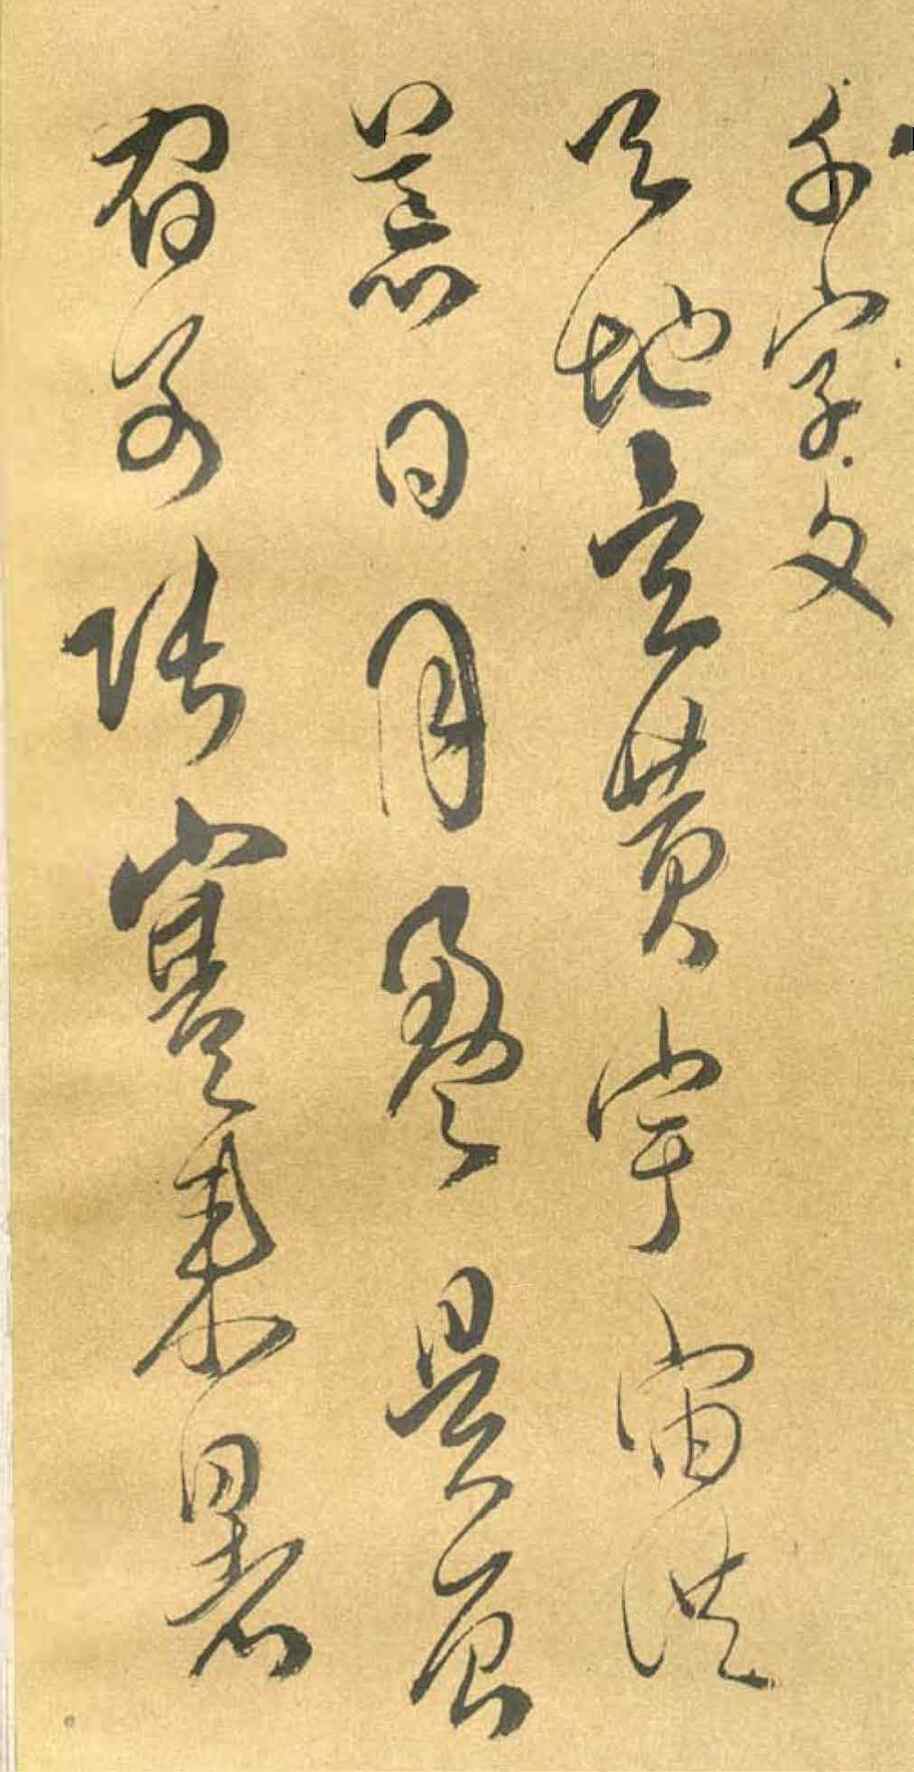 千字文
天地玄黄宇宙洪
荒日月盈昃辰
宿列张寒来暑